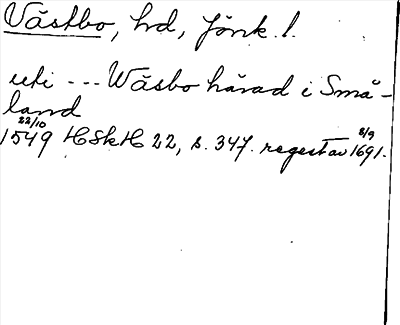 Västbo, hd, Jönk. l.
uti --- Wäsbo härad i Små-
land
22/10 8/9
1549 HSkH 22, s. 347. regest av 1691.